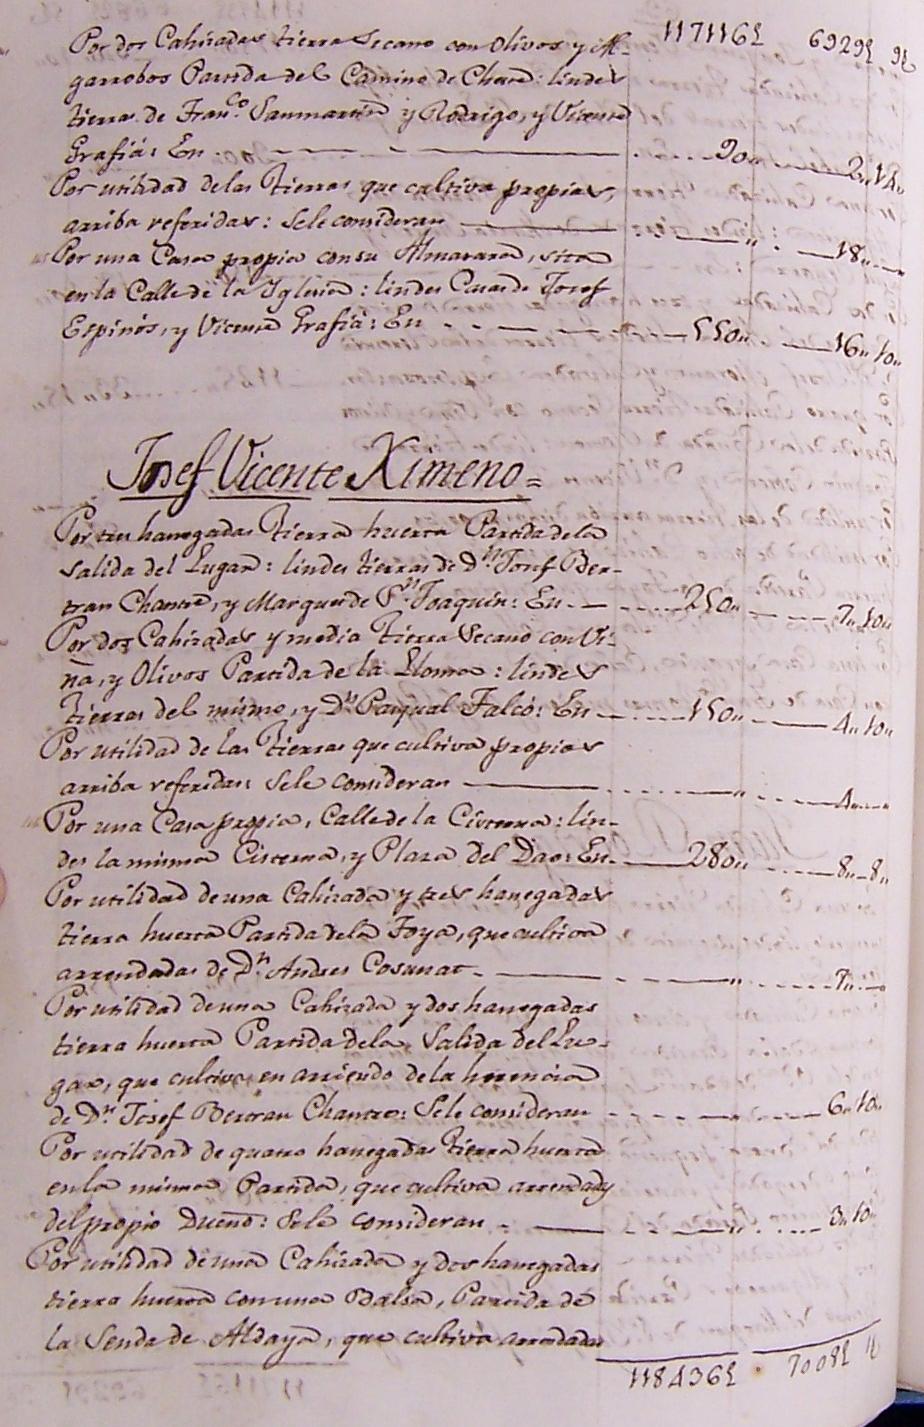 117116£ 6929£ 9£
Por dos Cahizadas tierra Secano con Olivos y Al-
garrobos Partida del Camino de Chova: lindes
tierras de Franco. Sanmartin y Rodrigo, y Vicente
Grafiá: En 90,, 2,,14,,
Por utilidad delas Tierras que cultiva propias,
arriba referidas: Sele consideran ,, 18,,
Por una Casa propia con su Almazara, sita
en la Calle de la Yglesia: lindes Casa de Josef
Espinós, y Vicente Grafiá: En 550,, 16,,10,,
Josef Vicente Ximeno =
Por tres hanegadas Tierra huerta Partida dela
Salida del Lugar: lindes tierras de Dn. Josef Ber-
tran Chantre, y Marques de Sn. Joaquin: En 250,, 7,,10,,
Por dos Cahizadas y media Tierra Secano con Vi-
ña, y Olivos Partida de la Lloma: lindes
Tierras del mismo, y Dn. Pasqual Falcó: En 150,, 4,,10,,
Por utilidad de las Tierras que cultiva propias
arriba referidas: Sele consideran ,, 4,,
Por una Casa propia, Calle de la Cisterna: lin-
des la misma Cisterna, y Plaza del Dao: En 280,, 8,,8,,
Por utilidad de una Cahizada y tres hanegadas
tierra huerta Partida dela Foya, que cultiva
arrendadas de Dn. Andres Cosunat ,, 7,,
Por utilidad de una Cahizada y dos hanegadas
tierra huerta Partida dela Salida del Lu-
gar, que cultiva en arriendo de la herencia
de Dn. Josef Bertran Chantre: Sele consideran ,, 6,,10,,
Por utilidad de quatro hanegadas Tierra huerta
en la misma Partida, que cultiva arrendadas
del propio Dueño: Sele consideran ,, 3,,10,,
Por utilidad de una Cahizada y dos hanegadas
tierra huerta con una Balsa, Partida de
la Senda de Aldaya, que cultiva arrendadas
118436£ 7008£